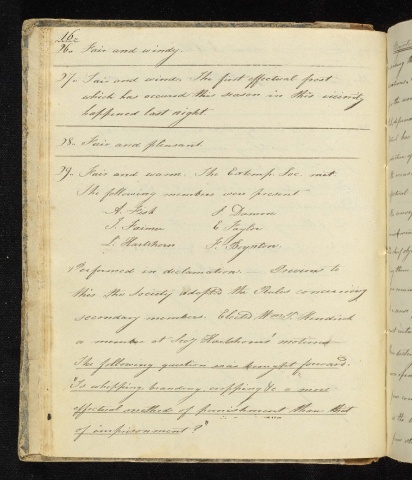 16.
26. Fair and windy.
27. Fair and wind. The first effectual frost
which has occured this season in this vicinity
happened last night.
28. Fair and pleasant
29. Fair and warm. The Extemp. Soc. met.
The following members were present
A. Fish S. Dawson
J. Farmer E. Taylor
L. Hartshorn F. Boynton.
Performed in declamation. Previous to
this the Society adopted the Rules concerning
secondary members. Elect'd Wm. P. Kendrick
a member at Hartshorn's motion
The following question was brought forward.
"Is whipping branding cropping &c a more
effectual method of punishment than that
of imprisonment?"